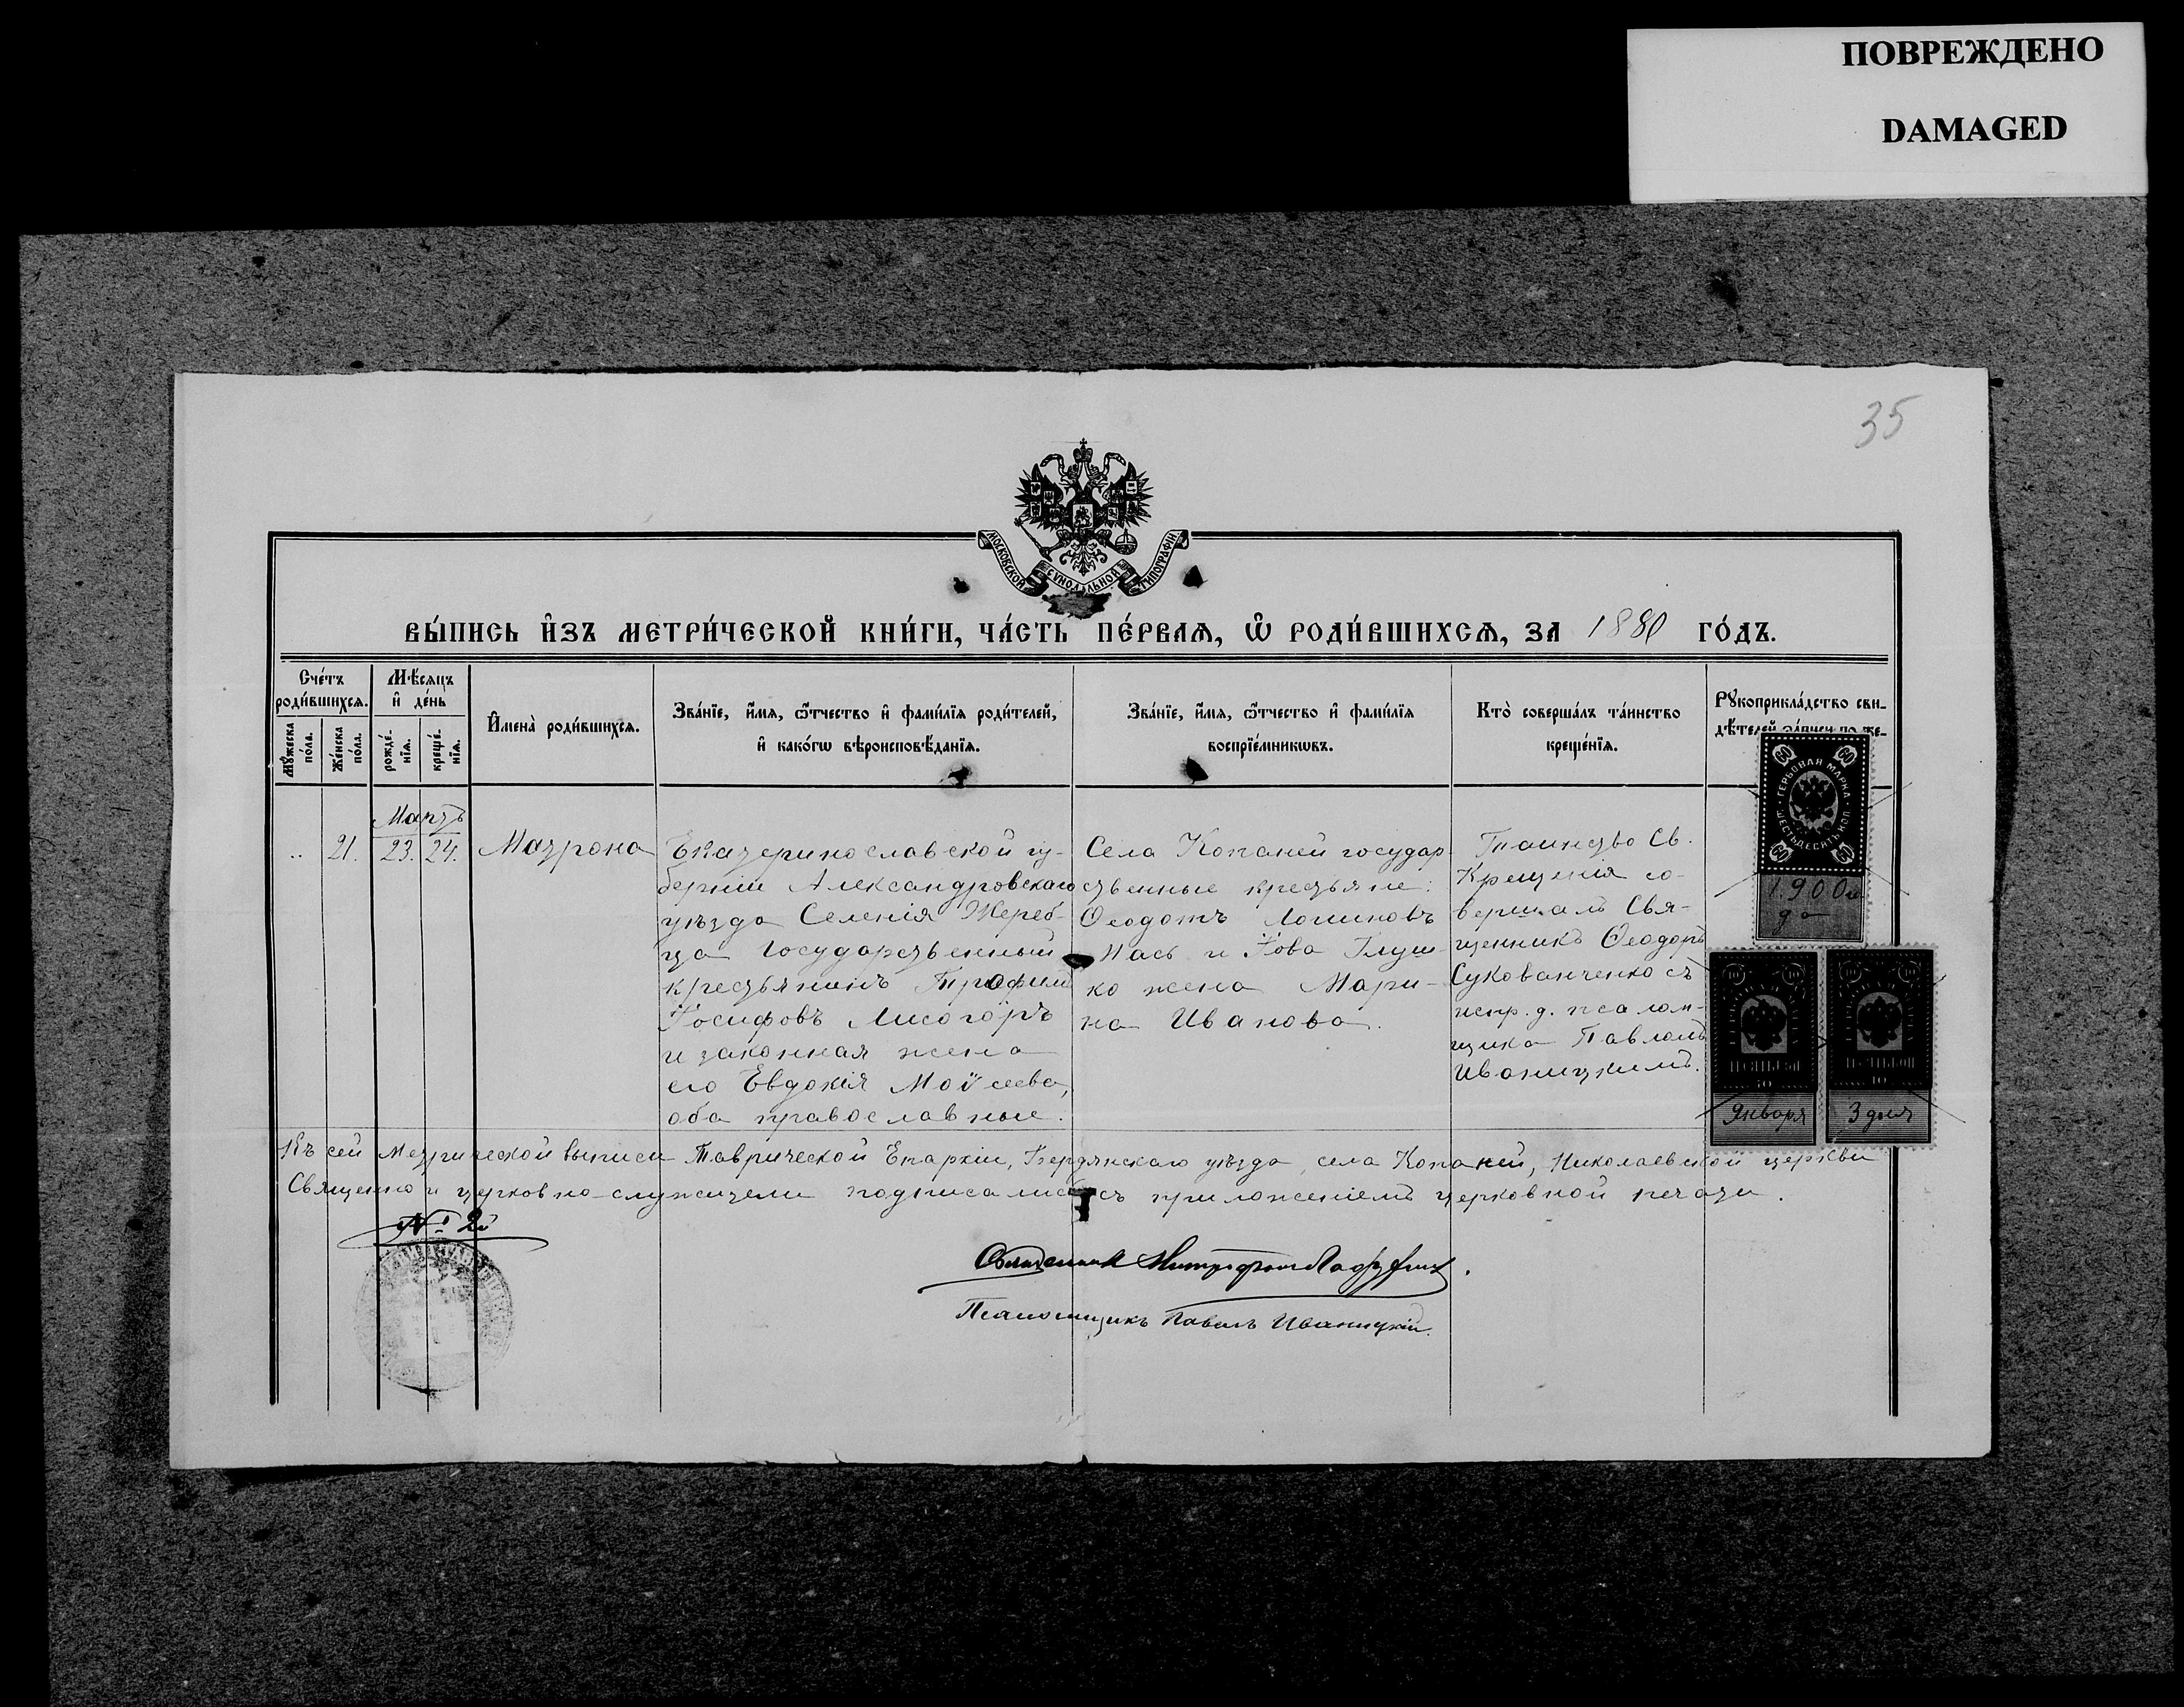 ПОВРЕЖДЕНО
DAMAGED
35
МОСКОВСКОЙ СѴНОДАЛЬНОЙ ТИПОГРАФІИ
ВЫ́ПИСЬ И҆ЗЪ МЕТРИ́ЧЕСКОЙ КНИ́ГИ, ЧА́СТЬ ПЕ́РВАЯ, Ѽ РОДИ́ВШИХСЯ, ЗА 1880 ГО́ДЪ.
Сче́тъ роди́вшихся.
Мѣ́сяцъ и҆ де́нь
Мꙋ́жеска по́ла.
Же́нска по́ла.
рожде́нїя.
креще́нїя.
И҆мена̀ роди́вшихся.
Зва́нїе, и҆́мя, ѻ҆́тчество и҆ фами́лїя роди́телей,
и҆ како́гѡ вѣроисповѣ́данїя.
Зва́нїе, и҆́мя, ѻ҆́тчество и҆ фами́лїя
воспрїе́мникѡвъ.
Кто̀ соверша́лъ та́инство
креще́нїя.
Рꙋкоприкла́дство сви-
дѣ́телей за́писи по же-
Мартъ
.. 21. 23. 24. Матрона
Екатеринославской гу-
берніи Александровскаго
уѣзда Селенія Жереб-
ца Государственный
крестьянинъ Трофим
Іосифовъ Лисогоръ
и законная жена
его Евдокія Моѵсеева,
оба православные.
Села Копаней государ-
ственные крестьяне:
Ѳеодотъ Логиновъ
Пась и Іова Глуш-
ко жена Мари-
на Иванова.
Таинство Св.
Крещенія со-
вершалъ Свя-
щенникъ Ѳеодоръ
Сукованченко съ
испр. д. псалом-
щика Павломъ
Иваницкимъ.
60 60
ГЕРБОВАЯ МАРКА
ШЕСТЬДЕСЯТЪ КОП.
60 60
1.900 го
да
10 10 10 10
10 10
Января 3 дня
Къ сей Метрической выписи Таврической Епархіи, Бердянскаго уѣзда, села Копаней, Николаевской церкви
Священно и церковно-служители подписались съ приложеніемъ церковной печати.
№ 2й
Священник Митрофан
Псаломщикъ Павелъ Иваницкій.